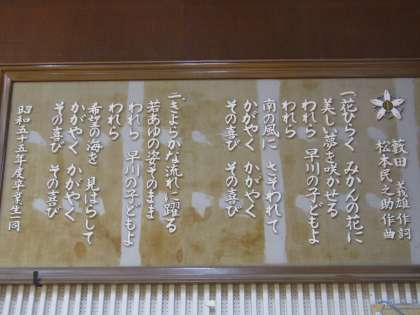 藪田義雄作詞
松本民之助作曲
一、花ひらく みかんの花に
美しい夢を咲かせる
われら 早川の子どもよ
われら
南の風に さそわれて
かがやく かがやく
その喜び
二、きよらかな流れに躍る
若あゆの姿そのまま
われら 早川の子どもよ
われら
希望の海を 見はらして
かがやく かがやく
その喜び その喜び
昭和五十五年度卒業生一同